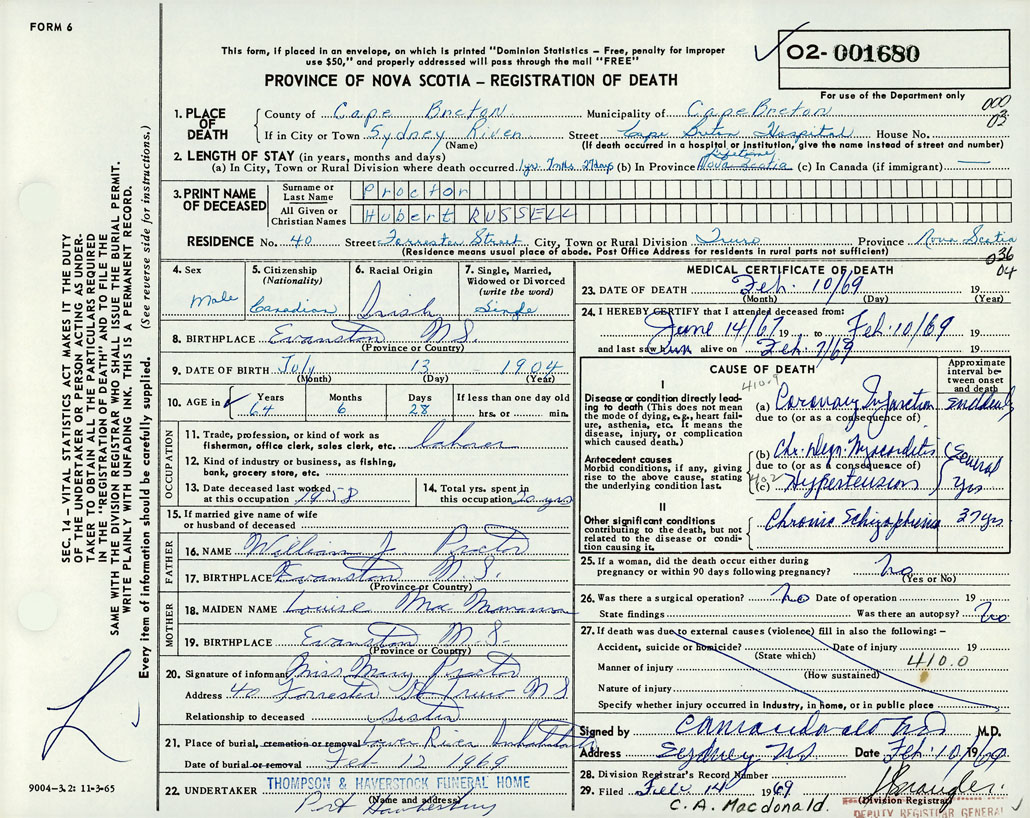 FORM 6
This form, if placed in an envelope, on which is printed "Dominion Statistics – Free, penalty for improper
use $50," and properly addressed will pass through the mail "FREE"
PROVINCE OF NOVA SCOTIA – REGISTRATION OF DEATH
02-001680
For use of the Department only
000
03
1. PLACE OF DEATH
County of Cape Breton Municipality of Cape Breton
If in City or Town Sydney River Street Cape Breton Hospital House No.
(Name) (If death occurred in a hospital or institution, give the name instead of street and number)
2. LENGTH OF STAY (in years, months and days)
(a) In City, Town or Rural Division where death occurred 1 yr. 7 mths 27 days (b) In Province Lifetime Nova Scotia (c) In Canada (if immigrant) —
3. PRINT NAME OF DECEASED
Surname or Last Name Proctor
All Given or Christian Names Hubert RUSSELL
RESIDENCE No. 40 Street Forrester Street City, Town or Rural Division Truro Province Nova Scotia
(Residence means usual place of abode. Post Office Address for residents in rural parts not sufficient)
036
04
4. Sex
Male
5. Citizenship
(Nationality)
Canadian
6. Racial Origin
Irish
7. Single, Married,
Widowed or Divorced
(write the word)
Single
8. BIRTHPLACE Evanston N.S.
(Province or Country)
9. DATE OF BIRTH July 13 1904
(Month) (Day) (Year)
10. AGE in
Years Months Days If less than one day old
64 6 28 hrs. or min.
OCCUPATION
11. Trade, profession, or kind of work as
fisherman, office clerk, sales clerk, etc. laborer
12. Kind of industry or business, as fishing,
bank, grocery store, etc.
13. Date deceased last worked
at this occupation 1958
14. Total yrs. spent in
this occupation 20 yrs
15. If married give name of wife
or husband of deceased
FATHER
16. NAME William J Proctor
17. BIRTHPLACE Evanston N.S.
(Province or Country)
MOTHER
18. MAIDEN NAME Louise Mac
19. BIRTHPLACE Evanston N.S.
(Province or Country)
20. Signature of informant Miss Mary Proctor
Address 40 Forrester St Truro N S
Relationship to deceased sister
21. Place of burial, cremation or removal Lower River Inhabitants
Date of burial or removal Feb 12 1969
22. UNDERTAKER THOMPSON & HAVERSTOCK FUNERAL HOME
(Name and address)
Port Hawkesbury
MEDICAL CERTIFICATE OF DEATH
23. DATE OF DEATH Feb. 10/69 19
(Month) (Day) (Year)
24. I HEREBY CERTIFY that I attended deceased from:
June 14/67 19 to Feb. 10/69 19
and last saw him alive on Feb. 7/69 19
CAUSE OF DEATH
Approximate interval between onset and death
I
410.9
Disease or condition directly leading to death (This does not mean the mode of dying, e.g., heart failure, asthenia, etc. It means the disease, injury, or complication which caused death.)
(a) Coronary Infarction Suddenly
due to (or as a consequence of)
Antecedent causes
Morbid conditions, if any, giving rise to the above cause, stating the underlying condition last.
(b) Chr. Degn. Myocarditis
due to (or as a consequence of)
402
(c) Hypertension
Several
yrs
II
Other significant conditions
contributing to the death, but not related to the disease or condition causing it.
Chronic Schizophrenia 27 yrs.
25. If a woman, did the death occur either during
pregnancy or within 90 days following pregnancy? no
(Yes or No)
26. Was there a surgical operation? no Date of operation 19
State findings Was there an autopsy? No
27. If death was due to external causes (violence) fill in also the following: –
Accident, suicide or homicide? Date of injury 19
(State which)
Manner of injury 410.0
(How sustained)
Nature of injury
Specify whether injury occurred in Industry, in home, or in public place
Signed by C A Macdonald M.D. M.D.
Address Sydney NS Date Feb. 10 19 69
28. Division Registrar's Record Number
29. Filed Feb. 14 1969
(Division Registrar)
C. A. Macdonald.
DEPUTY REGISTRAR GENERAL
SEC. 14 – VITAL STATISTICS ACT MAKES IT THE DUTY
OF THE UNDERTAKER OR PERSON ACTING AS UNDER-
TAKER TO OBTAIN ALL THE PARTICULARS REQUIRED
IN THE "REGISTRATION OF DEATH" AND TO FILE THE
SAME WITH THE DIVISION REGISTRAR WHO SHALL ISSUE THE BURIAL PERMIT.
WRITE PLAINLY WITH UNFADING INK. THIS IS A PERMANENT RECORD.
Every item of information should be carefully supplied. (See reverse side for instructions.)
9004-3.2: 11-3-65